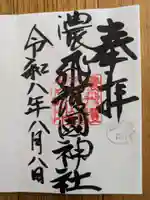 奉拝
濃飛護國神社
令和八年八月八日